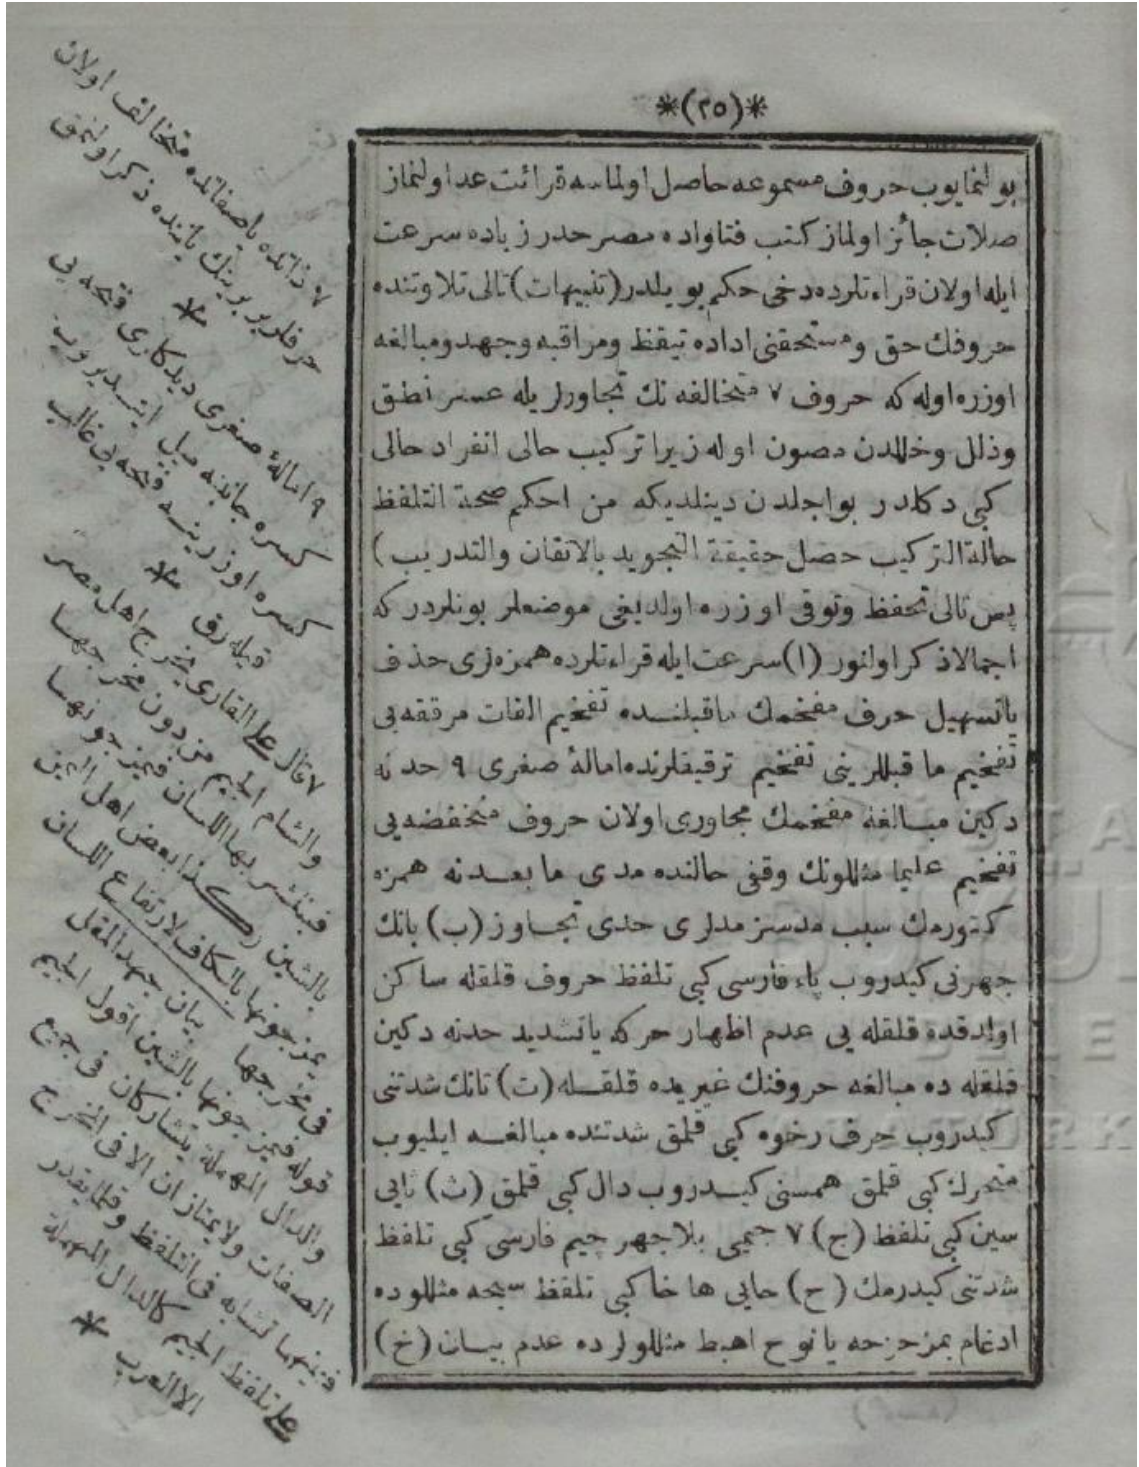 *(٢٥)*
بولنمايوب حروف مسموعه حاصل اولماسه قرائت عد اولنماز
صلات جائز اولماز كتب فتاواده مصرحدر زياده سرعت
ايله اولان قراءتلرده دخى حكم بويلدر (تنبيهات) تالى تلاوتنده
حروفك حق ومستحقنى اداده تيقظ ومراقبه وجهد ومبالغه
اوزره اوله كه حروف ٧ متخالفه نك تجاورلريله عسر نطق
وذلل وخللدن مصون اوله زيرا تركيب حالى انفراد حالى
كبى دكلدر بواجلدن دينلديكه من احكم صحة التلفظ
حالة التركيب حصل حقيقة التجويد بالاتقان والتدريب)
پس تالى تحفظ وتوقى اوزره اولديغى موضعلر بونلردر كه
اجمالا ذكر اولنور (ا) سرعت ايله قراءتلرده همزه لرى حذف
ياتسهيل حرف مفخمك ماقبلنده تفخيم الفات مرققه يى
تفخيم ما قبللرينى تفخيم ترقيقلرنده امالۀ صغرى ٩ حدنه
دكين مبالغه مفخمك مجاورى اولان حروف منخفضه يى
تفخيم عليما مثللونك وقفى حالنده مدى ما بعدنه همزه
كتورمك سبب مدسز مدلرى حدى تجاوز (ب) بانك
جهرنى كيدروب پاء فارسى كبى تلفظ حروف قلقله ساكن
اولدقده قلقله يى عدم اظهار حركه ياتشديد حدنه دكين
قلقله ده مبالغه حروفنك غيريده قلقله (ت) تانك شدتنى
كيدروب حرف رخوه كبى قلمق شدتنده مبالغه ايليوب
متحرك كبى قلمق همسنى كيدروب دال كبى قلمق (ث) ثايى
سين كبى تلفظ (ج) ٧ جيمى بلاجهر چيم فارسى كبى تلفظ
شدتنى كيدرمك (ح) حايى ها خا كبى تلفظ سبحه مثللوده
ادغام بمزحزحه يا نوح اهبط مثللولرده عدم بيان (خ)
٧ ذاتده ياصفاتده متخالف اولان
حرفلر بربرينك ياننده ذكر اولنمق
*
٩ امالۀ صغرى ديدكلرى فتحه يى
كسره جانبنه ميل ايتديروب
كسره اوزرينه فتحه يى غالب
قيله رق *
٧ قال على القارى يخرج اهل مصر
والشام الجيم من دون مخرجها
فينتشر بها اللسان فيمزجونها
بالشين وكذا بعض اهل اليمن
يمزجونها بالكاف لارتفاع اللسان
فى مخرجها بيان جهد المقل
قوله فيمزجونها بالشين اقول الجيم
والدال المهملة يتشاركان فى جميع
الصفات ولا يمتازان الا فى المخرج
فبينهما تشابه فى التلفظ وقلما يقدر
على تلفظ الجيم كالدال المهملة
الا العرب *